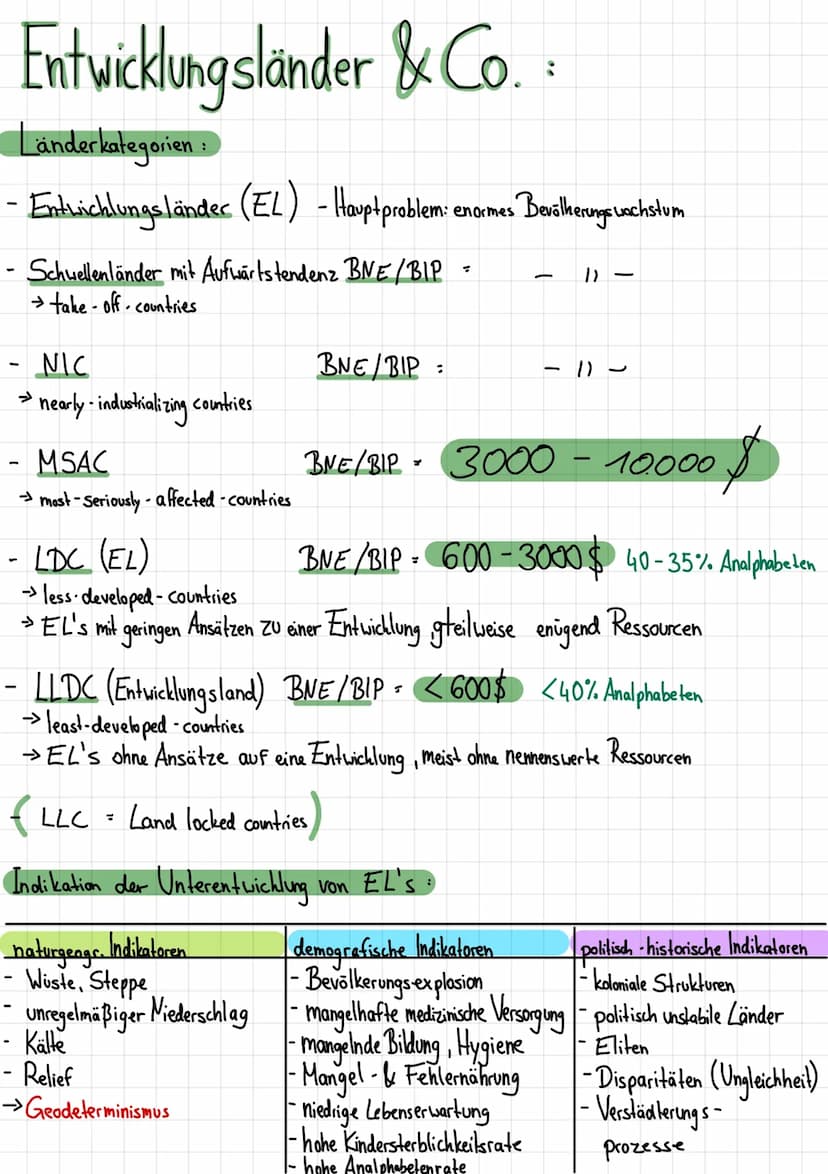 Entwicklungsländer & Co. :
Länderkategorien :
- Entwicklungsländer (EL) - Hauptproblem: enormes Bevölkerungswachstum
- Schwellenländer mit Aufwärtstendenz BNE/BIP = - 11 -
→ take-off-countries
- NIC BNE/BIP : - 11 -
→ nearly-industrializing countries
- MSAC BNE/BIP = 3000 - 10.000 $
→ most-seriously-affected-countries
- LDC (EL) BNE/BIP = 600-3000$ 40-35% Analphabeten
→ less-developed-countries
→ EL's mit geringen Ansätzen zu einer Entwicklung, gteilweise enügend Ressourcen
- LLDC (Entwicklungsland) BNE/BIP = <600$ <40% Analphabeten
→ least-developed-countries
→ EL's ohne Ansätze auf eine Entwicklung, meist ohne nennenswerte Ressourcen
(- LLC = Land locked countries)
Indikation der Unterentwicklung von EL's :
naturgeogr. Indikatoren
- Wüste, Steppe
- unregelmäßiger Niederschlag
- Kälte
- Relief
→ Geodeterminismus
demografische Indikatoren
- Bevölkerungsexplosion
- mangelhafte medizinische Versorgung
- mangelnde Bildung, Hygiene
- Mangel- & Fehlernährung
- niedrige Lebenserwartung
- hohe Kindersterblichkeitsrate
- hohe Analphabetenrate
politisch-historische Indikatoren
- koloniale Strukturen
- politisch unstabile Länder
- Eliten
- Disparitäten (Ungleichheit)
- Verstädterungs-
prozesse